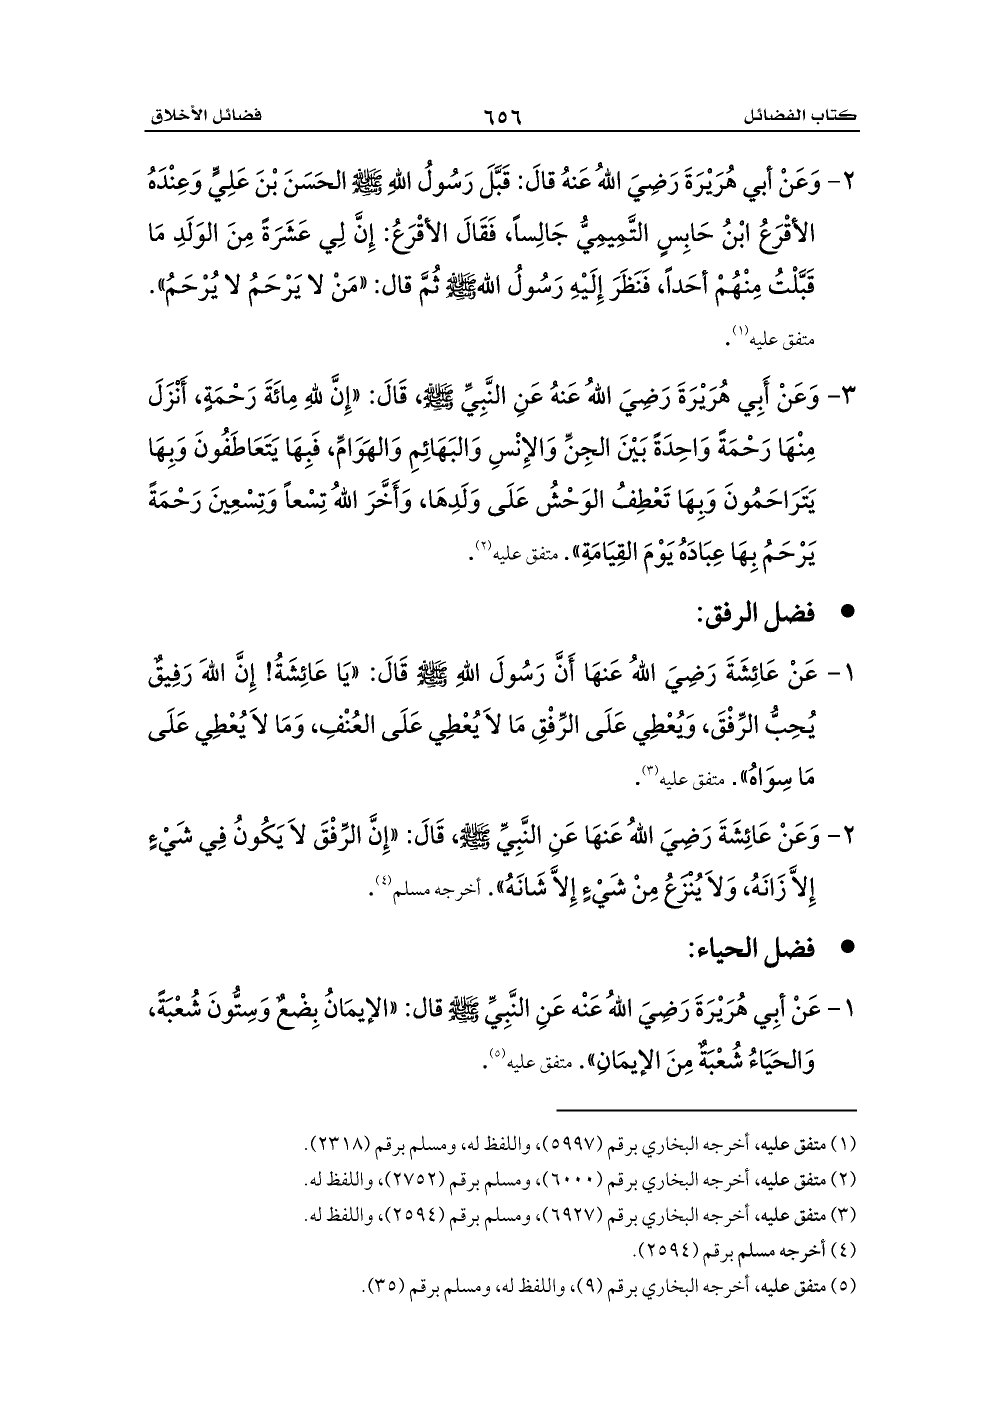 كتاب الفضائل ٦٥٦ فضائل الأخلاق
٢- وَعَنْ أبي هُرَيْرَةَ رَضِيَ اللهُ عَنهُ قالَ: قَبَّلَ رَسُولُ اللهِ ﷺ الحَسَنَ بْنَ عَلِيٍّ وَعِنْدَهُ
الأقْرَعُ ابْنُ حَابِسٍ التَّمِيمِيُّ جَالِساً، فَقَالَ الأقْرَعُ: إِنَّ لِي عَشَرَةً مِنَ الوَلَدِ مَا
قَبَّلْتُ مِنْهُمْ أحَداً، فَنَظَرَ إِلَيْهِ رَسُولُ اللهﷺ ثُمَّ قال: «مَنْ لا يَرْحَمُ لا يُرْحَمُ».
متفق عليه(١).
٣- وَعَنْ أَبِي هُرَيْرَةَ رَضِيَ اللهُ عَنهُ عَنِ النَّبِيِّ ﷺ، قَالَ: «إِنَّ للهِ مِائَةَ رَحْمَةٍ، أَنْزَلَ
مِنْهَا رَحْمَةً وَاحِدَةً بَيْنَ الجِنِّ وَالإِنْسِ وَالبَهَائِمِ وَالهَوَامِّ، فَبِهَا يَتَعَاطَفُونَ وَبِهَا
يَتَرَاحَمُونَ وَبِهَا تَعْطِفُ الوَحْشُ عَلَى وَلَدِهَا، وَأَخَّرَ اللهُ تِسْعاً وَتِسْعِينَ رَحْمَةً
يَرْحَمُ بِهَا عِبَادَهُ يَوْمَ القِيَامَةِ». متفق عليه(٢).
● فضل الرفق:
١- عَنْ عَائِشَةَ رَضِيَ اللهُ عَنهَا أَنَّ رَسُولَ اللهِ ﷺ قَالَ: «يَا عَائِشَةُ! إِنَّ اللهَ رَفِيقٌ
يُحِبُّ الرِّفْقَ، وَيُعْطِي عَلَى الرِّفْقِ مَا لاَ يُعْطِي عَلَى العُنْفِ، وَمَا لاَ يُعْطِي عَلَى
مَا سِوَاهُ». متفق عليه(٣).
٢- وَعَنْ عَائِشَةَ رَضِيَ اللهُ عَنهَا عَنِ النَّبِيِّ ﷺ، قَالَ: «إِنَّ الرِّفْقَ لاَ يَكُونُ فِي شَيْءٍ
إِلاَّ زَانَهُ، وَلاَ يُنْزَعُ مِنْ شَيْءٍ إِلاَّ شَانَهُ». أخرجه مسلم(٤).
● فضل الحياء:
١- عَنْ أبِي هُرَيْرَةَ رَضِيَ اللهُ عَنْه عَنِ النَّبِيِّ ﷺ قال: «الإيمَانُ بِضْعٌ وَسِتُّونَ شُعْبَةً،
وَالحَيَاءُ شُعْبَةٌ مِنَ الإيمَانِ». متفق عليه(٥).
(١) متفق عليه، أخرجه البخاري برقم (٥٩٩٧)، واللفظ له، ومسلم برقم (٢٣١٨).
(٢) متفق عليه، أخرجه البخاري برقم (٦٠٠٠)، ومسلم برقم (٢٧٥٢)، واللفظ له.
(٣) متفق عليه، أخرجه البخاري برقم (٦٩٢٧)، ومسلم برقم (٢٥٩٤)، واللفظ له.
(٤) أخرجه مسلم برقم (٢٥٩٤).
(٥) متفق عليه، أخرجه البخاري برقم (٩)، واللفظ له، ومسلم برقم (٣٥).